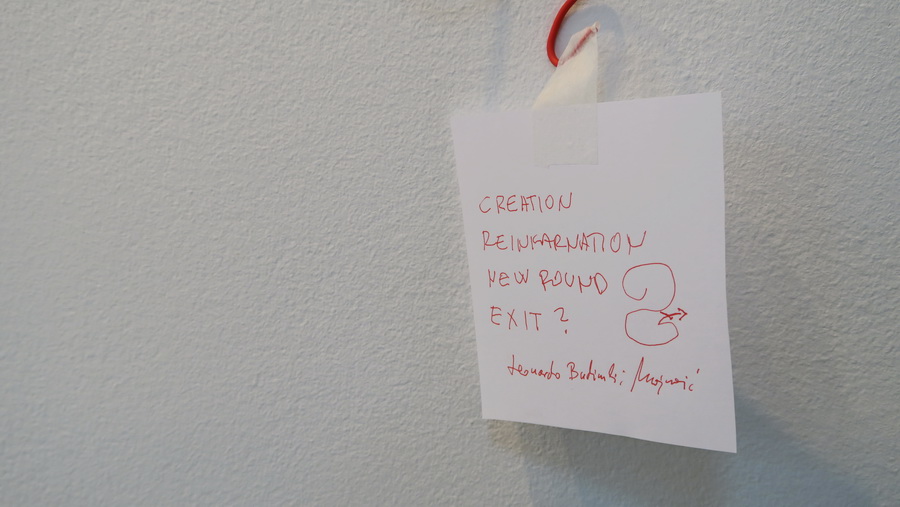 CREATION
REINKARNATION
NEW ROUND
EXIT?
Leonardo